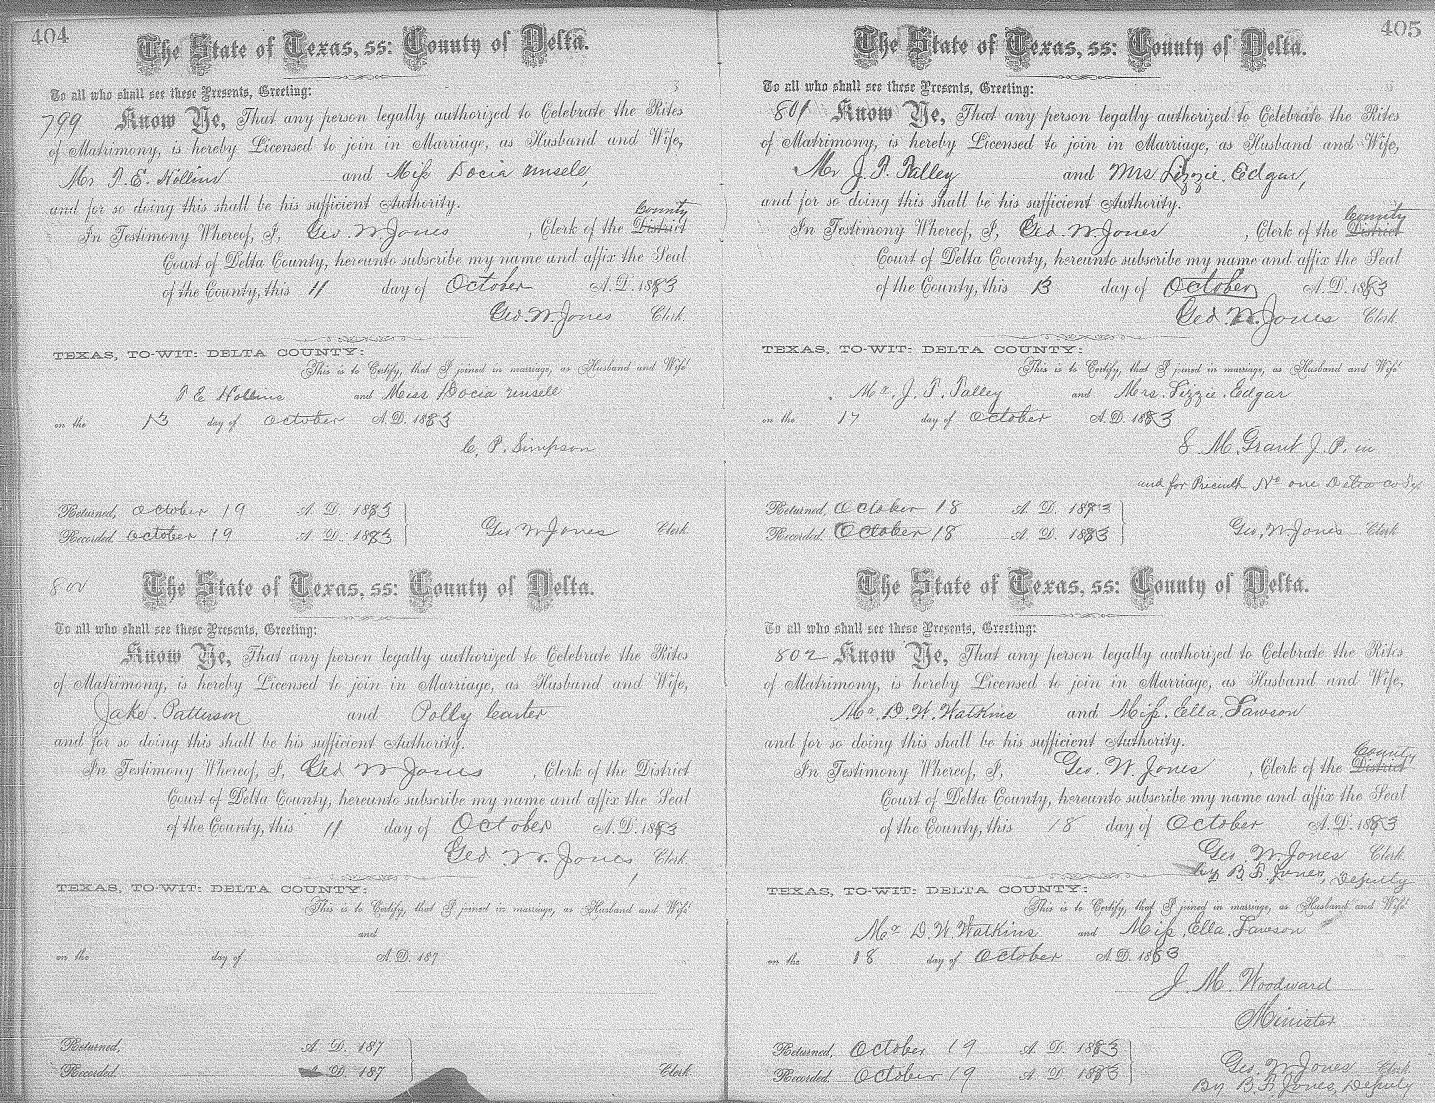 404
The State of Texas, ss: County of Delta.
To all who shall see these Presents, Greeting:
799 Know Ye, That any person legally authorized to Celebrate the Rites
of Matrimony, is hereby Licensed to join in Marriage, as Husband and Wife,
Mr. E. Hollins and Miss Docia
and for so doing this shall be his sufficient Authority.
County
In Testimony Whereof, I, Geo. W Jones, Clerk of the District
Court of Delta County, hereunto subscribe my name and affix the Seal
of the County, this 11 day of October A.D. 1883
Geo. W. Jones Clerk.
TEXAS, TO-WIT: DELTA COUNTY:
This is to Certify, that I joined in marriage, as Husband and Wife
E Hollins and Miss Docia
on the 13 day of October A.D. 1883
C. P. Simpson
Returned, October 19 A. D. 1883
Recorded. October 19 A. D. 1883 Geo W Jones Clerk
800 The State of Texas, ss: County of Delta.
To all who shall see these Presents, Greeting:
Know Ye, That any person legally authorized to Celebrate the Rites
of Matrimony, is hereby Licensed to join in Marriage, as Husband and Wife,
Jake. Patterson and Polly Carter
and for so doing this shall be his sufficient Authority.
In Testimony Whereof, I, Geo W Jones, Clerk of the District
Court of Delta County, hereunto subscribe my name and affix the Seal
of the County, this 11 day of October A.D. 1883
Geo W. Jones Clerk.
TEXAS, TO-WIT: DELTA COUNTY:
This is to Certify, that I joined in marriage, as Husband and Wife
and
on the day of A.D. 187
Returned, A. D. 187
Recorded. A. D. 187 Clerk
405
The State of Texas, ss: County of Delta.
To all who shall see these Presents, Greeting:
801 Know Ye, That any person legally authorized to Celebrate the Rites
of Matrimony, is hereby Licensed to join in Marriage, as Husband and Wife,
Mr J. P. Talley and Mrs Lizzie. Edgar,
and for so doing this shall be his sufficient Authority.
County
In Testimony Whereof, I, Geo W. Jones, Clerk of the District
Court of Delta County, hereunto subscribe my name and affix the Seal
of the County, this 13 day of October A.D. 1883
Geo. W. Jones Clerk.
TEXAS, TO-WIT: DELTA COUNTY:
This is to Certify, that I joined in marriage, as Husband and Wife
Mr. J. P. Talley and Mrs. Lizzie. Edgar
on the 17 day of October A.D. 1883
S M. Grant J. P. in
and for Precinct No one Delta co
Returned, October 18 A. D. 1883
Recorded. October 18 A. D. 1883 Geo, W Jones Clerk
The State of Texas, ss: County of Delta.
To all who shall see these Presents, Greeting:
802 Know Ye, That any person legally authorized to Celebrate the Rites
of Matrimony, is hereby Licensed to join in Marriage, as Husband and Wife,
Mr. D. W. Watkins and Miss. Ella. Lawson
and for so doing this shall be his sufficient Authority.
County
In Testimony Whereof, I, Geo. W. Jones, Clerk of the District
Court of Delta County, hereunto subscribe my name and affix the Seal
of the County, this 18 day of October A.D. 1883
Geo. W. Jones Clerk.
by B F Jones, Deputy
TEXAS, TO-WIT: DELTA COUNTY:
This is to Certify, that I joined in marriage, as Husband and Wife
Mr D. W. Watkins and Miss. Ella. Lawson
on the 18 day of October A.D. 1883
J. M. Woodward
Minister
Returned, October 19 A. D. 1883
Recorded. October 19 A. D. 1883 Geo. W Jones Clerk
By B. F. Jones, Deputy